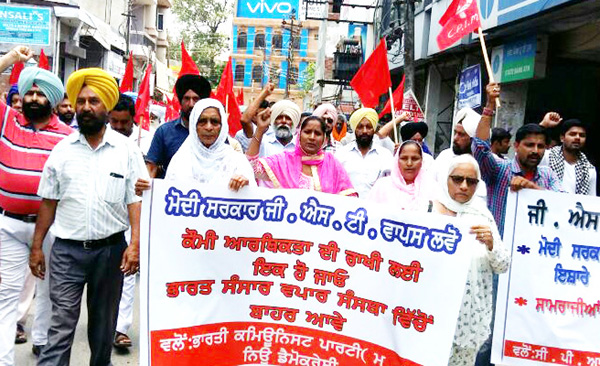 NSALI'S
vivo
STATE BANK
CP
ਮੋਦੀ ਸਰਕਾਰ ਜੀ . ਐਸ . ਟੀ . ਵਾਪਸ ਲਵੋ
ਕੌਮੀ ਆਰਥਿਕਤਾ ਦੀ ਰਾਖੀ ਲਈ
ਇਕ ਹੋ ਜਾਓ
ਭਾਰਤ ਸੰਸਾਰ ਵਪਾਰ ਸੰਸਥਾ ਵਿੱਚੋਂ
ਬਾਹਰ ਆਵੇ
ਵਲੋਂ:ਭਾਰਤੀ ਕਮਿਊਨਿਸਟ ਪਾਰਟੀ( ਮ
ਨਿਊ ਡੈਮੋਕਰੇਸੀ
ਜੀ . ਐਸ
* ਮੋਦੀ ਸਰਕ
ਇਸ਼ਾਰੇ
* ਸਾਮਰਾਜੀਆਂ
ਵਲੋਂ : ਸੀ . ਪੀ . ਆ